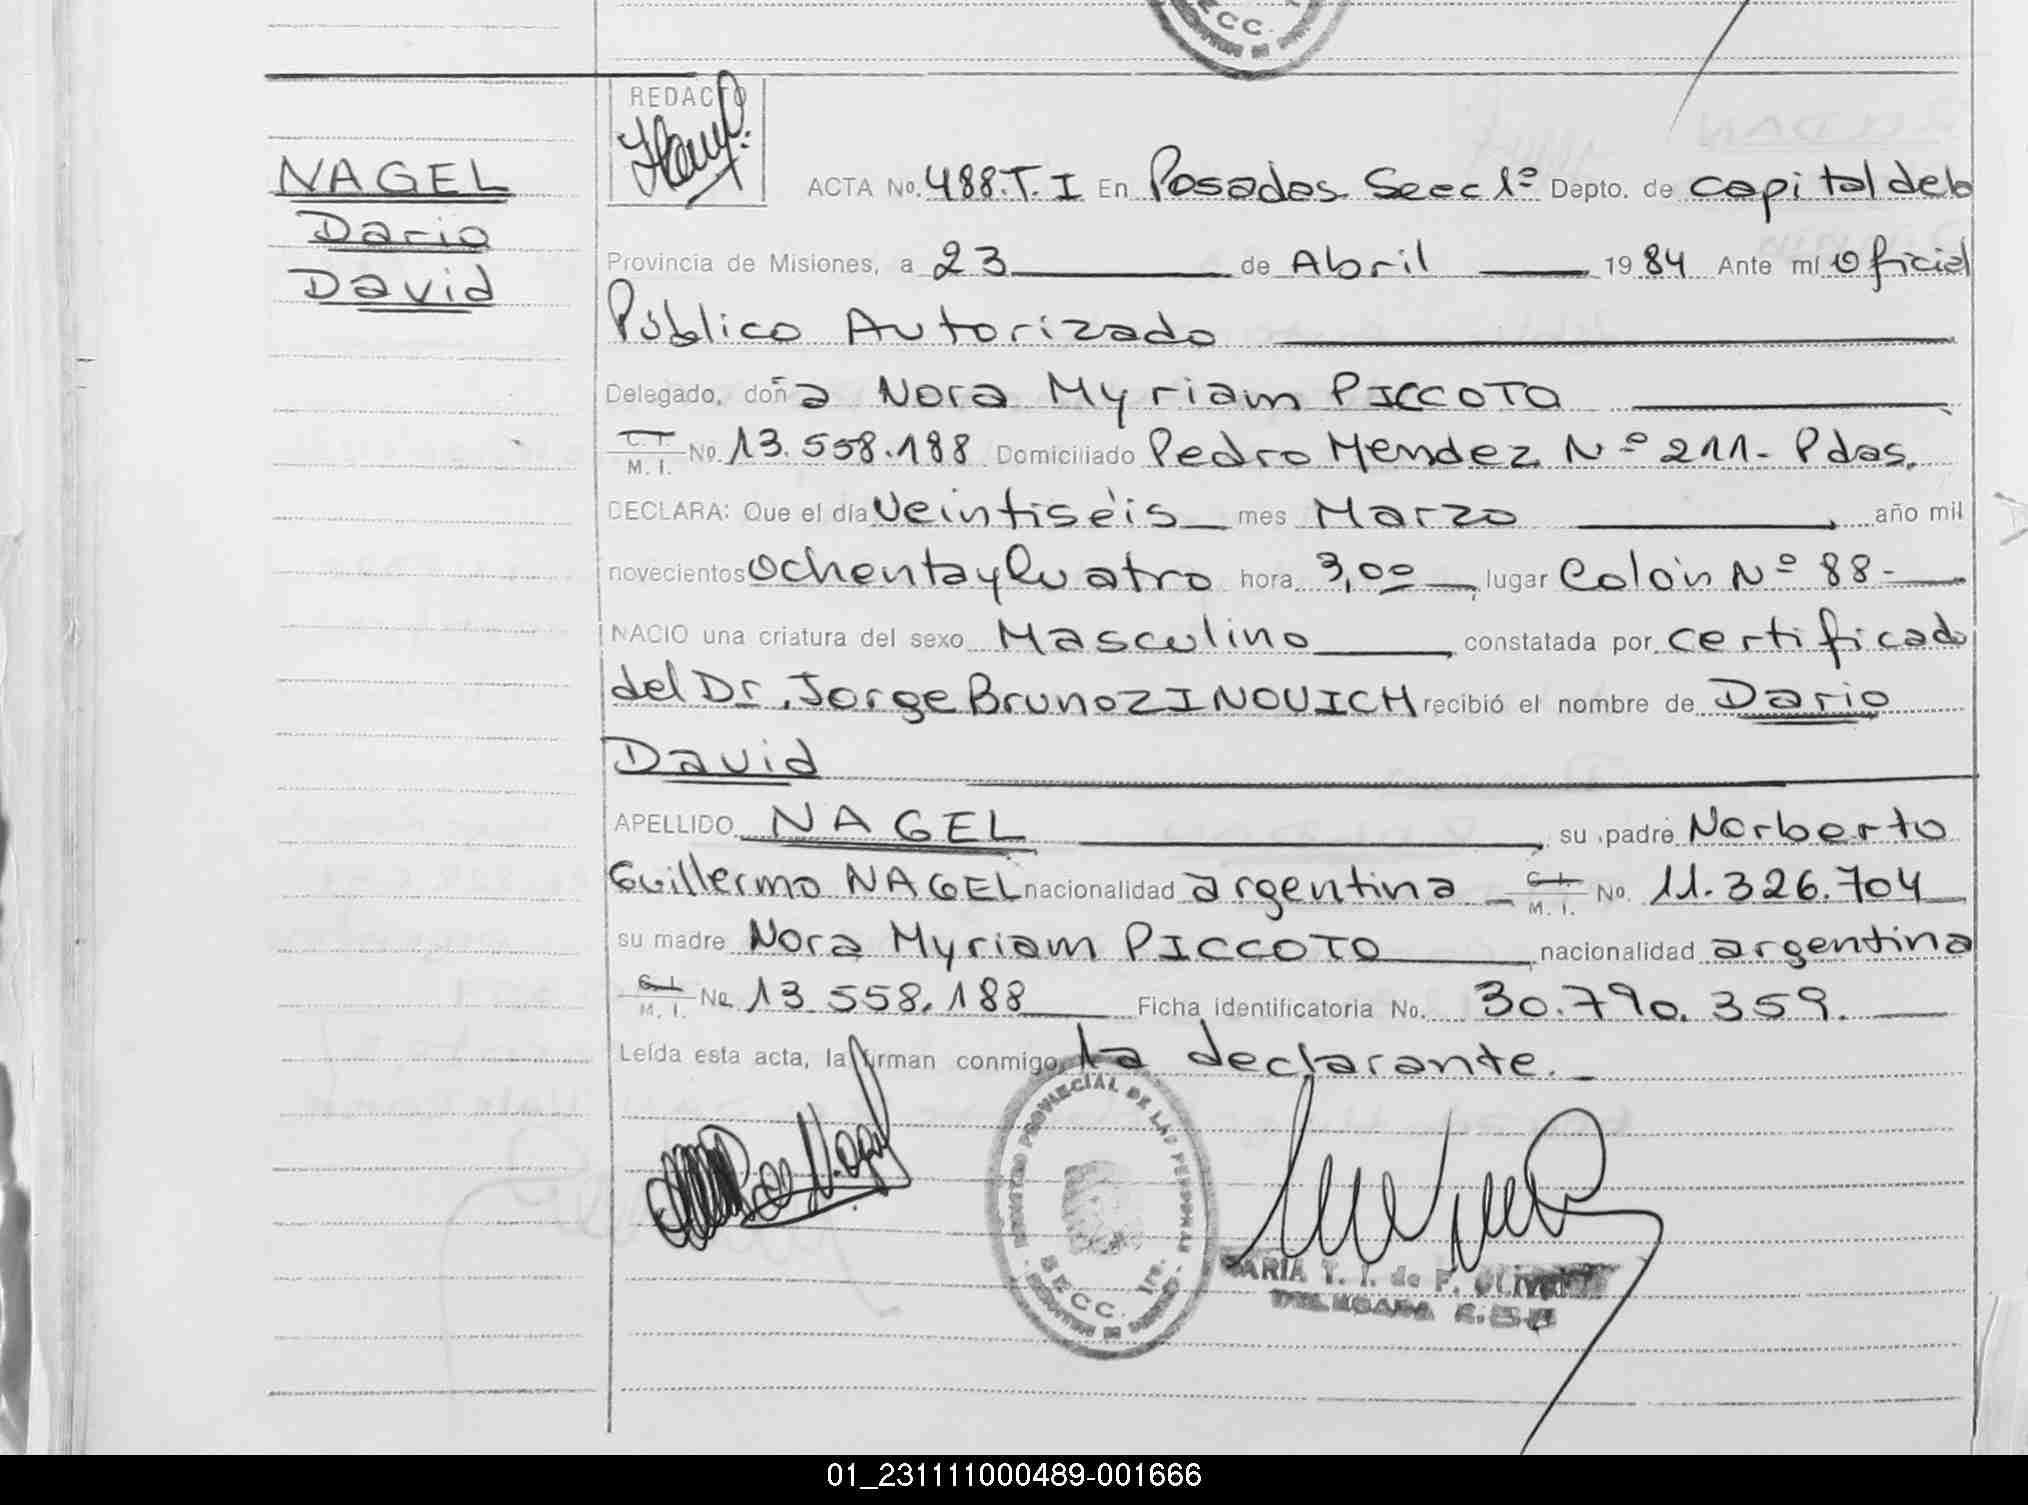 SECC.
REDACTO
NAGEL
Dario
David
ACTA No. 488.T.I En Posadas Secc 1º Depto. de capital de la
Provincia de Misiones, a 23 de Abril 1984 Ante mí Oficial
Público Autorizado
Delegado, doña Nora Myriam PICCOTO
C. I. M. I. No. 13.558.188 Domiciliado Pedro Mendez Nº 211- Pdas.
DECLARA: Que el día Veintiséis mes Marzo, año mil
novecientos Ochenta y Cuatro hora 3,00, lugar Colón Nº 88-
NACIO una criatura del sexo Masculino, constatada por certificado
del Dr. Jorge Bruno ZINOVICH recibió el nombre de Dario
David
APELLIDO NAGEL, su padre Norberto
Guillermo NAGEL nacionalidad argentina C. I. M. I. No. 11.326.704
su madre Nora Myriam PICCOTO, nacionalidad argentina
C. I. M. I. No 13.558.188 Ficha identificatoria No. 30.790.359.
Leída esta acta, la firman conmigo, la declarante.
REGISTRO PROVINCIAL DE LAS PERSONAS
SECC. 1ra.
MARIA T. I. de F. OLIVEIRA
DELEGADA
01_231111000489-001666